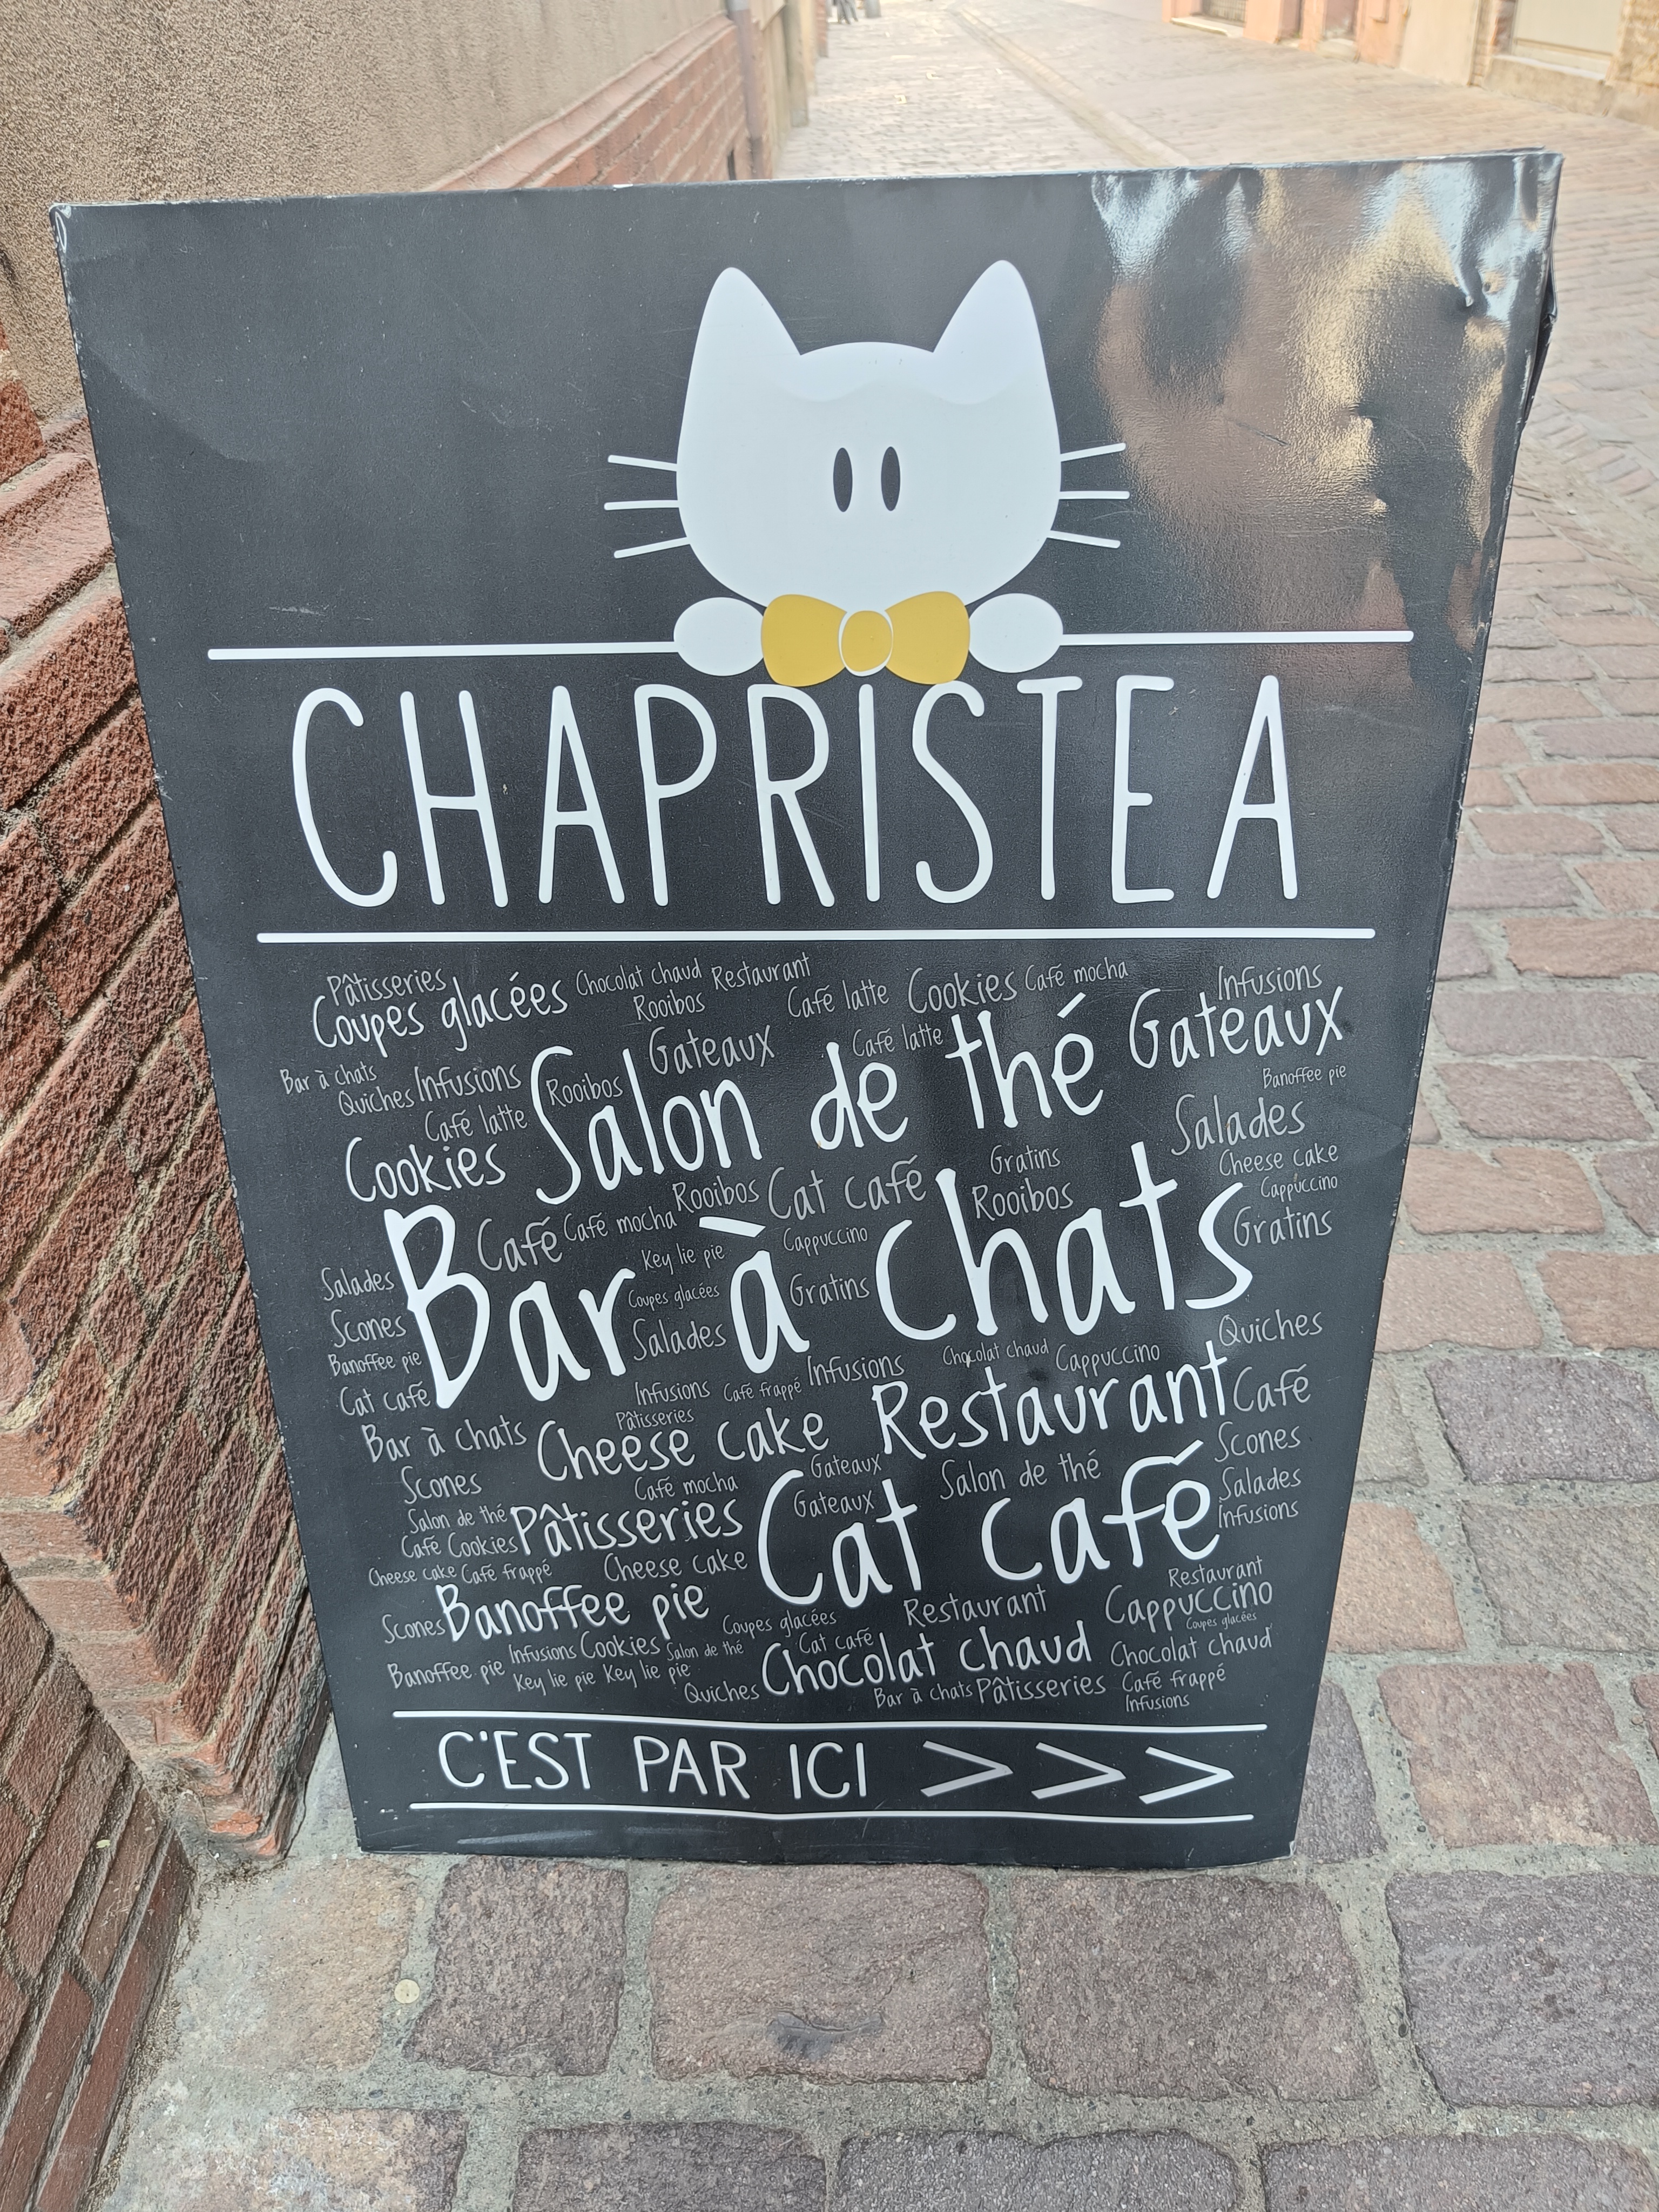 CHAPRISTEA
Pâtisseries
Coupes glacées
Chocolat chaud
Restaurant
Rooibos
Café latte
Cookies
Café mocha
Infusions
Gateaux
Café latte
Gateaux
Bar à chats
Quiches
Infusions
Rooibos
Café latte
Salon de thé
Banoffee pie
Salades
Cookies
Rooibos
Cat café
Gratins
Rooibos
Cheese cake
Cappuccino
Gratins
Café
Café mocha
Key lie pie
Cappuccino
Bar à chats
Salades
Coupes glacées
Gratins
Scones
Salades
Banoffee pie
Cat café
Infusions
Café frappé
Infusions
Chocolat chaud
Cappuccino
Quiches
Pâtisseries
Restaurant
Café
Bar à chats
Cheese cake
Scones
Café mocha
Gateaux
Salon de thé
Scones
Salades
Infusions
Salon de thé
Pâtisseries
Gateaux
Café Cookies
Cat café
Cheese cake
Café frappé
Cheese cake
Scones
Banoffee pie
Coupes glacées
Restaurant
Restaurant
Cappuccino
Coupes glacées
Infusions
Cookies
Salon de thé
Cat café
Chocolat chaud
Chocolat chaud
Banoffee pie
Key lie pie
Key lie pie
Quiches
Bar à chats
Pâtisseries
Café frappé
Infusions
C'EST PAR ICI >>>